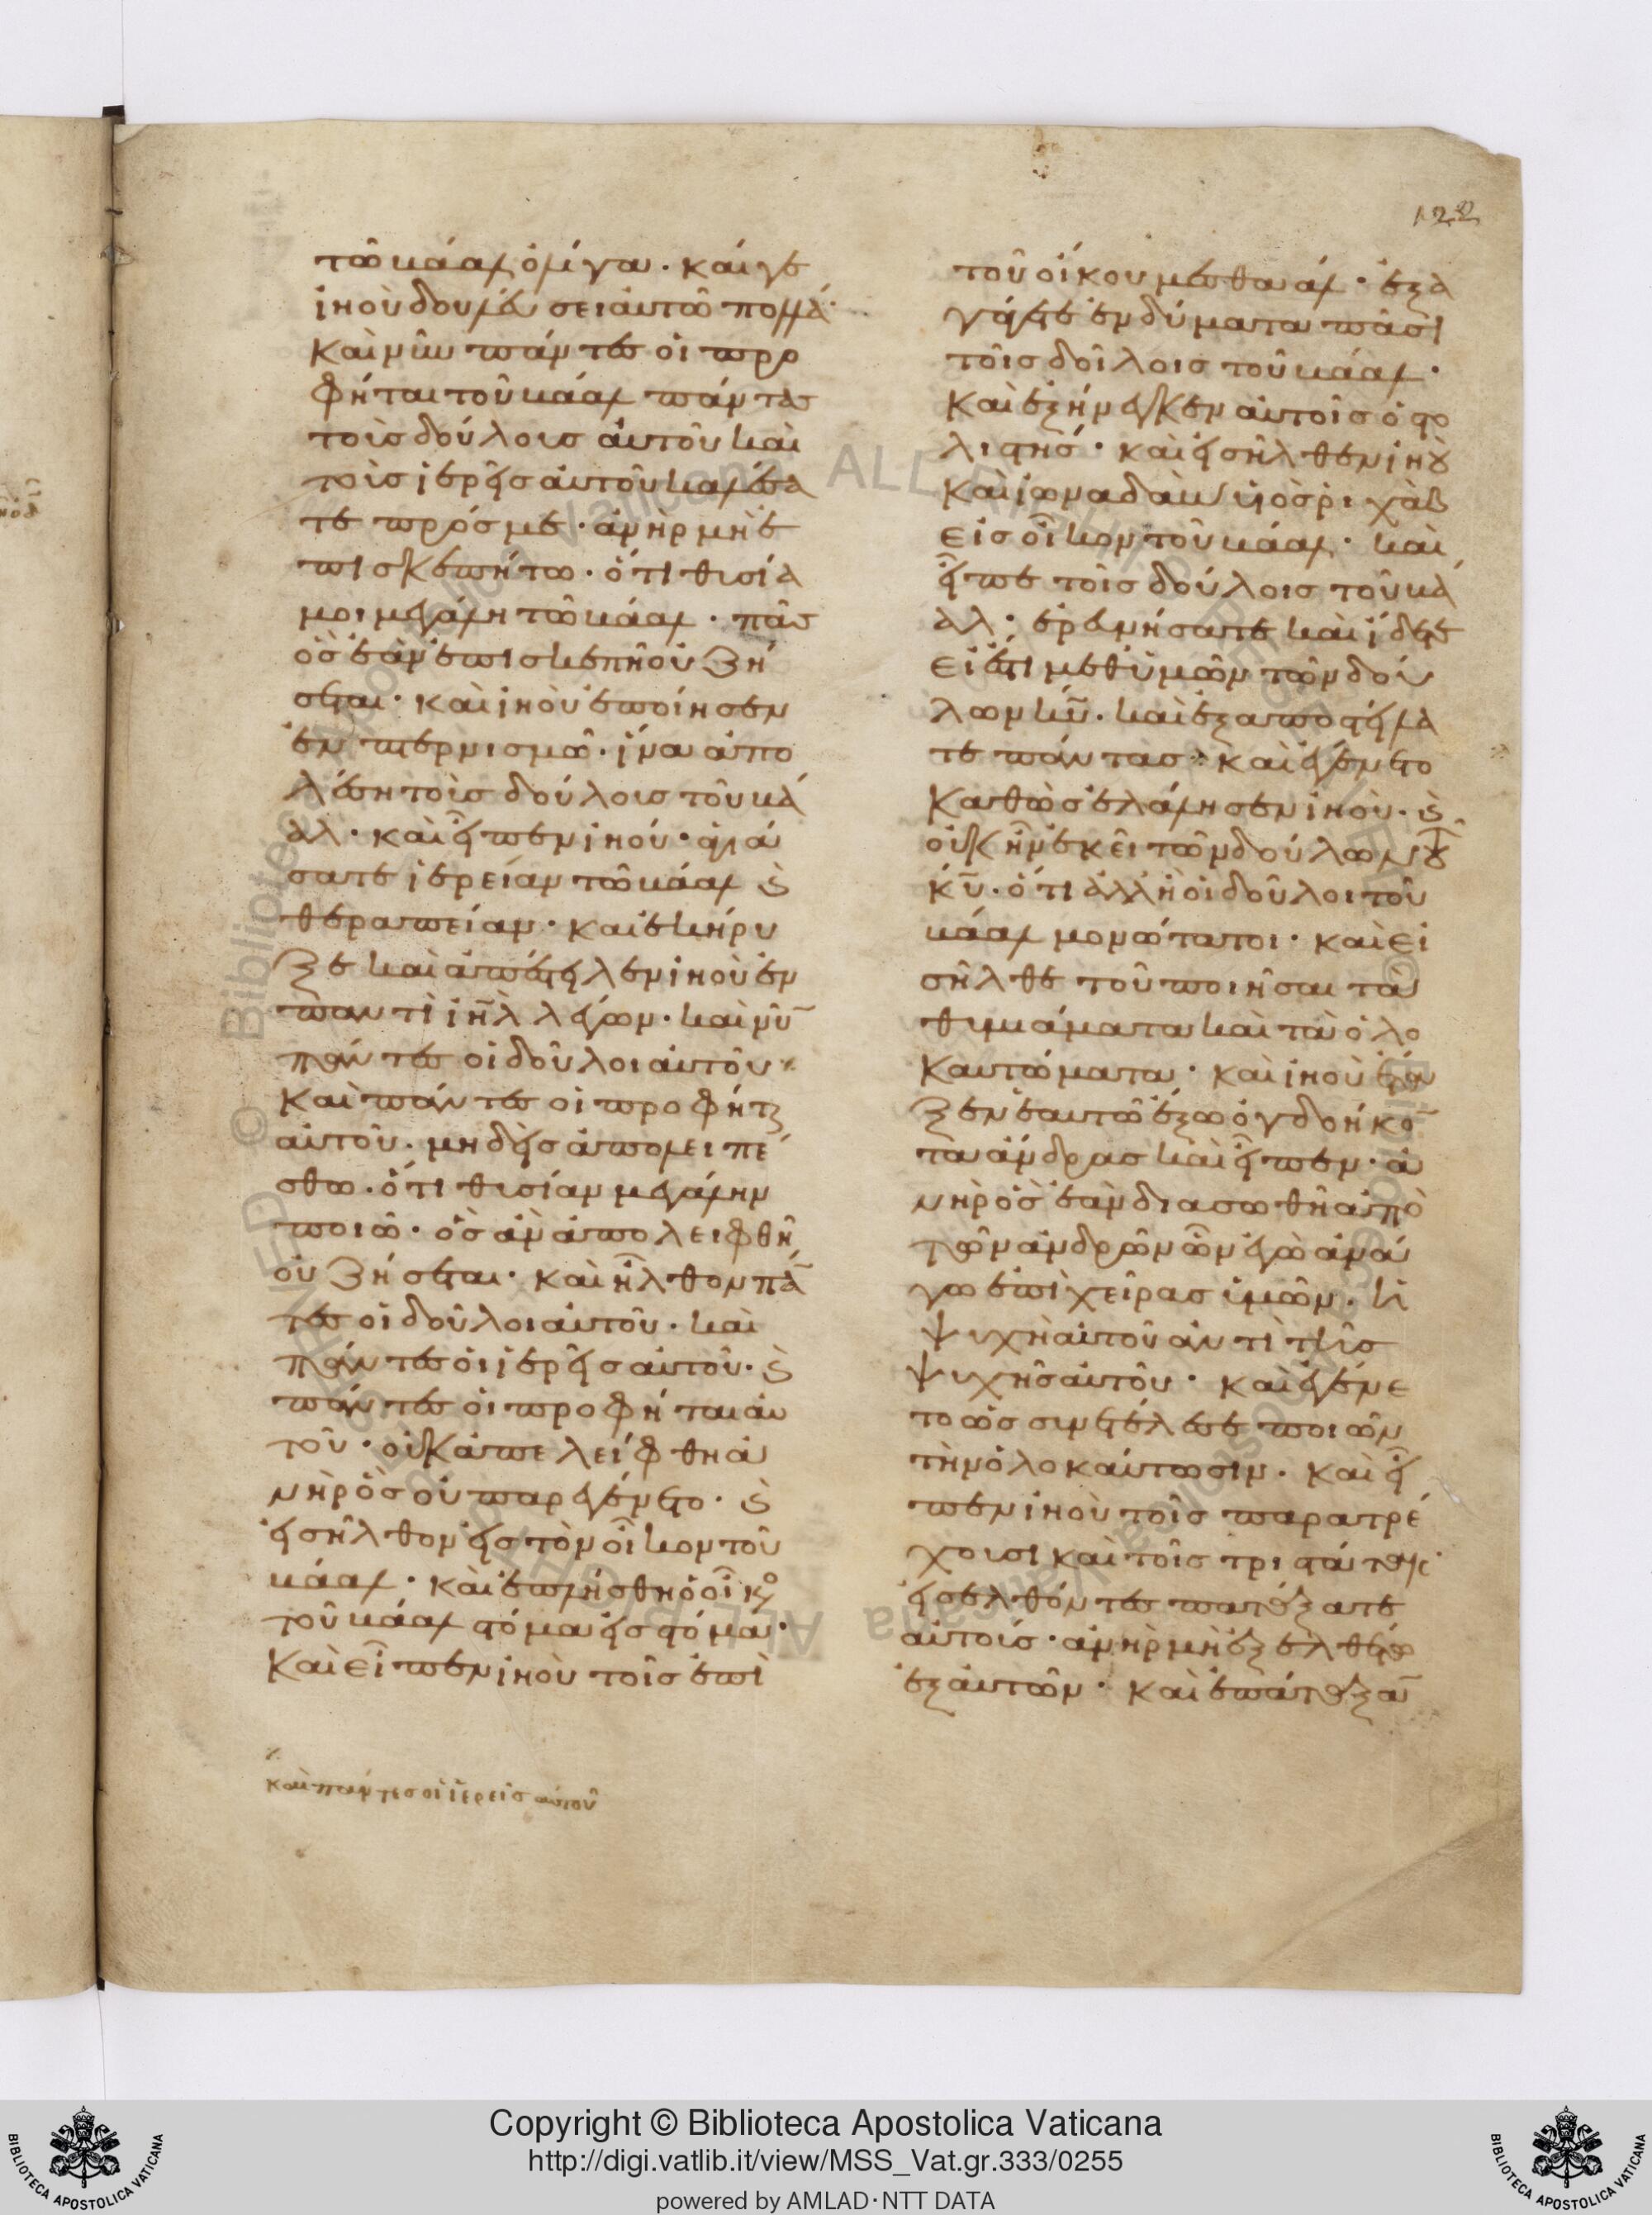 122
τῶ βάαλ ὀλίγα· καί γε
ἰηοὺ δουλεύσει αὐτῶ πολλά·
καὶ νῦν πάντες οἱ προ
φῆται τοῦ βάαλ πάντας
τοὺς δούλους αὐτοῦ καὶ
τοὺς ἱερεῖς αὐτοῦ καλέσα
τε πρός με· ἀνὴρ μὴ ἐ
πισκεπήτω· ὅτι θυσία
μοι μεγάλη τῶ βάαλ· πᾶς
ὃς ἐὰν ἐπισκεπῆ οὐ ζή
σεται· καὶ ἰηοὺ ἐποίησεν
ἐν πτερνισμῶ· ἵνα ἀπο
λέση τοὺς δούλους τοῦ βά
αλ· καὶ εἶπεν ἰηού· ἁγιά
σατε ἱερείαν τῶ βάαλ καὶ
θεραπείαν· καὶ ἐκήρυ
ξε καὶ ἀπέστειλεν ἰηοὺ ἐν
παντὶ ἰηλ λέγων· καὶ νῦ
πάντες οἱ δοῦλοι αὐτοῦ
καὶ πάντες οἱ προφῆται
αὐτοῦ· μηδεὶς ἀπολειπέ
σθω· ὅτι θυσίαν μεγάλην
ποιῶ· ὃς ἂν ἀπολειφθῆ
οὐ ζήσεται· καὶ ἦλθον πά
τες οἱ δοῦλοι αὐτοῦ· καὶ
πάντες οἱ ἱερεῖς αὐτοῦ· καὶ
πάντες οἱ προφῆται αὐ
τοῦ· οὐ κἀπελείφθη ἀ
νὴρ ὃς οὐ παρεγένετο· καὶ
εἰσῆλθον εἰς τὸν οἶκον τοῦ
βάαλ· καὶ ἐπλήσθη ὁ οἶκο
τοῦ βάαλ στόμα εἰς στόμα·
καὶ εἶπεν ἰηοὺ τοῖς ἐπὶ
καὶ πάντες οἱ ἱερεῖς αὐτοῦ
τοῦ οἴκου μεσθααλ· ἐξα
γάγετε ἐνδύματα πᾶσι
τοῖς δούλοις τοῦ βάαλ·
καὶ ἐξήνεγκεν αὐτοῖς ὁ στο
λιστής· καὶ εἰσῆλθεν ἰηοὺ
καὶ ἰωναδὰβ υἱὸς ῥιχὰβ
εἰς οἶκον τοῦ βάαλ· καὶ
εἶπε τοῖς δούλοις τοῦ βά
αλ· ἐρευνήσατε καὶ ἴδετε
εἰ ἔστι μεθ' ὑμῶν τῶν δού
λων κυ· καὶ ἐξαποστείλα
τε πάντας· καὶ ἐγένετο
καθὼς ἐλάλησεν ἰηοὺ· καὶ
οὐκ ἦν ἐκεῖ τῶν δούλων τοῦ
κυ· ὅτι ἀλλ' ἢ οἱ δοῦλοι τοῦ
βάαλ μονώτατοι· καὶ εἰ
σῆλθε τοῦ ποιῆσαι τὰ
θυμιάματα καὶ τὰ ὁλο
καυτώματα· καὶ ἰηοὺ ἔτα
ξεν ἑαυτῶ ἔξω ὀγδοήκο
τα ἄνδρας καὶ εἶπεν· ἀ
νὴρ ὃς ἐὰν διασωθῆ ἀπὸ
τῶν ἀνδρῶν ὧν ἐγὼ ἀνά
γω ἐπὶ χεῖρας ὑμῶν· ἡ
ψυχὴ αὐτοῦ ἀντὶ τῆς
ψυχῆς αὐτοῦ· καὶ ἐγένε
το ὡς συνετέλεσε ποιῶν
τὴν ὁλοκαύτωσιν· καὶ εἶ
πεν ἰηοὺ τοῖς παρατρέ
χουσι καὶ τοῖς τριστάταις·
εἰσελθόντες πατάξατε
αὐτούς· ἀνὴρ μὴ ἐξελθέτω
ἐξ αὐτῶν· καὶ ἐπάταξαν
Copyright © Biblioteca Apostolica Vaticana
http://digi.vatlib.it/view/MSS_Vat.gr.333/0255
powered by AMLAD·NTT DATA